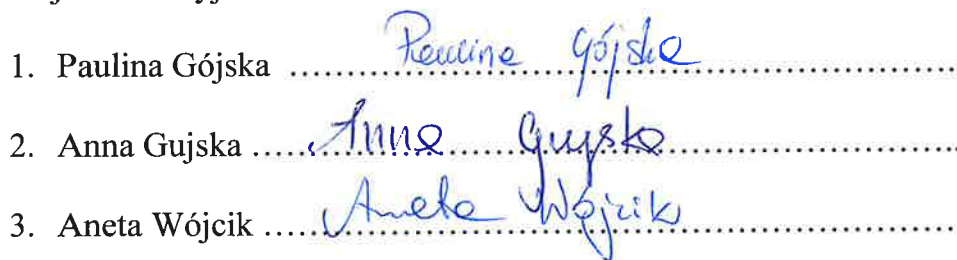 1. Paulina Gójska ........ Paulina Gójska ........
2. Anna Gujska ........ Anna Gujska ........
3. Aneta Wójcik ........ Aneta Wójcik ........